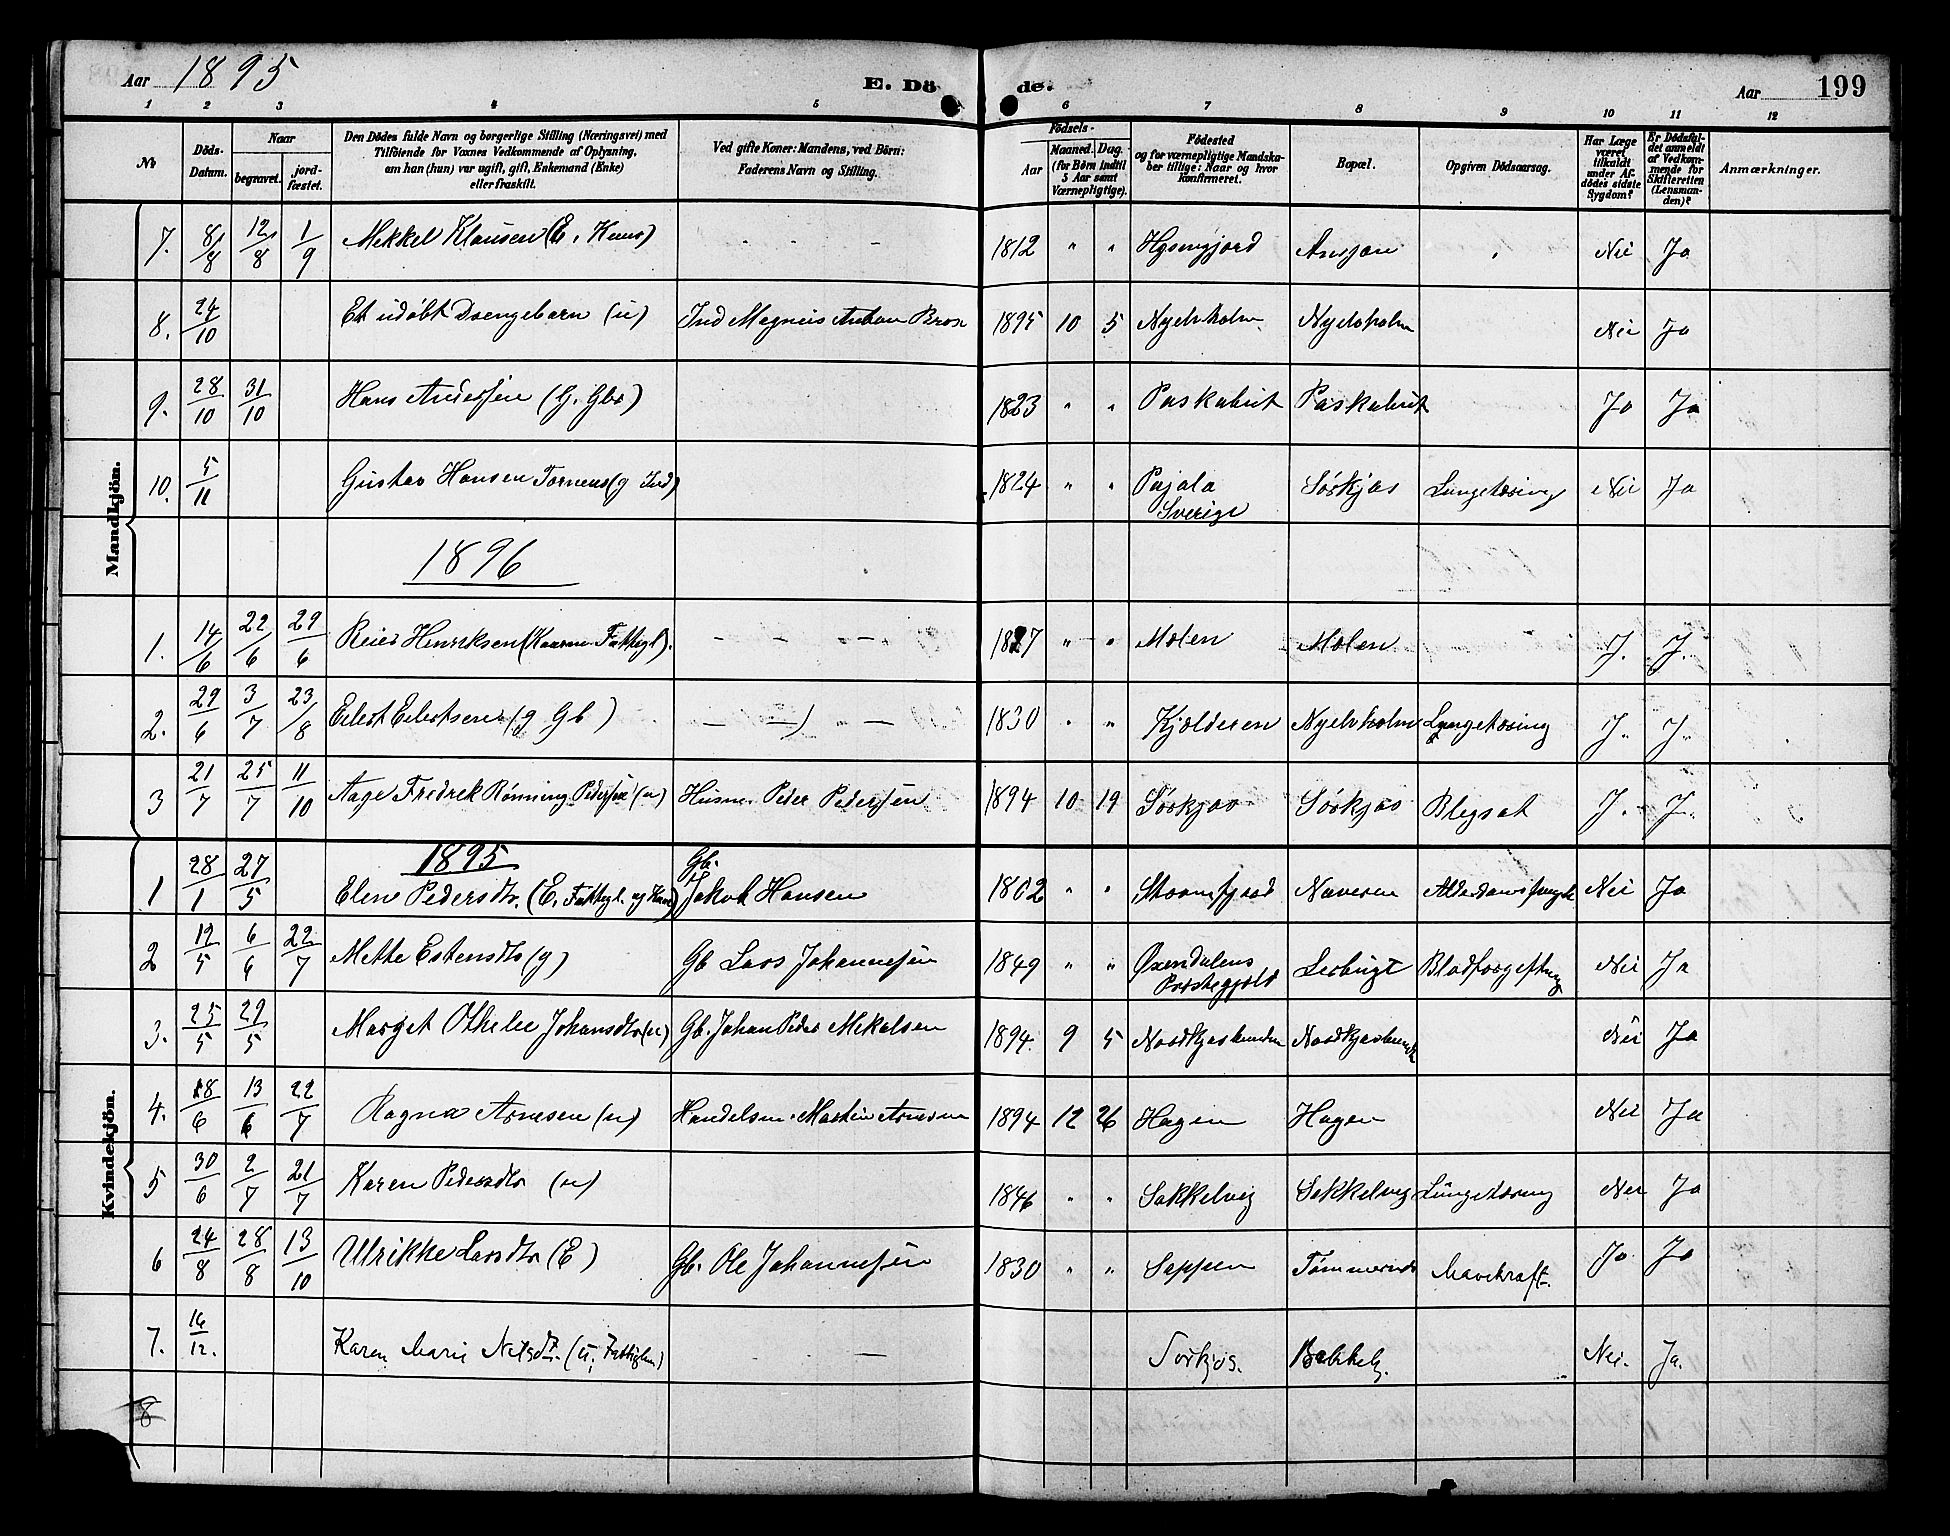 Aar 1895 E. Döde. Aar 199
1 2 3 4 5 6 7 8 9 10 11 12
No Döds-Datum. Naar begravet. jordfæstet. Den Dödes fulde Navn og borgerlige Stilling (Næringsvei) med Tilföiende for Voxnes Vedkommende af Oplysning, om han (hun) var ugift, gift, Enkemand (Enke) eller fraskilt. Ved gifte Koner: Mandens, ved Börn: Faderens Navn og Stilling. Födsels- Aar Maaned. Dag. (for Börn indtil 5 Aar samt Værnepligtige). Födested og for værnepligtige Mandskaber tillige: Naar og hvor konfirmeret. Bopæl. Opgiven Dödsaarsag. Har Læge været tilkaldt under Afdödes sidste Sygdom? Er Dödsfaldet anmeldt af Vedkommende for Skifteretten (Lensmanden)? Anmærkninger.
Mandkjön.
7. 8/8 12/8 1/9 Mikkel Klausen (E. ) - - - 1812 " " Nei Ja
8. 24/10 Et udøbt Drengebarn (u) Ind Magnus Anton 1895 10 5 Nyelvholm Nyelvholm Nei Ja
9. 28/10 31/10 Hans Anderssen (G. Gbr) 1823 " " Paskabrit Paskabrit Ja Ja
10. 5/11 Gustav Hansen Torneus (g Ind) 1824 " " Pajala Sverige Sørkjos Lungetæring Nei Ja
1896
1. 14/6 22/6 29/6 Reier Henriksen ( Fattigl). - - - - 1827 " " Molen Molen J. J.
2. 29/6 3/7 23/8 Eilert Eilertsen (g Gb) - - - - 1830 " " Kjelderen Nyelvholm Lungetæring J. J.
3 21/7 25/7 11/10 Aage Fredrek Rønning Pederssen (u) Husm. Peder Pederssen 1894 10 19 Sørkjos Sørkjos Blegsot J. J.
Kvindekjön.
1895
1 28/1 27/5 Elen Pedersdtr. (E. Fattigl. og ) Gb. Jakob Hansen 1802 " " Straumfjord Naveren Nei Ja
2 19/5 6/6 22/7 Mette Estensdtr (g) Gb Lars Johannessen 1849 " " Øxendalens Præstegjeld Leirbugt Blodforgiftning Nei Ja
3. 25/5 29/5 Marget Othelie Johansdtr (u) Gb. Johan Peder Mikalsen 1894. 9 5 Nordkjosbunden Nordkjosbunden Nei Ja
4. 8/6 13/6 22/7 Ragna Arnesen (u) Handelsm. Martin Arnesen 1894 12 26 Hagen Hagen Nei Ja
5 30/6 2/7 21/7 Karen Pedersdtr (u) 1846 " " Sakkelvig Sakkelvig Lungetæring Nei Ja
6 24/8 28/8 13/10 Ulrikke Larsdtr (E) Gb. Ole Johannessen 1830 " " Sappen Mavekræft. Ja Ja
7. 16/12. Karen Marie Nilsdtr. (u, Fattiglem) - - Sørkjos. Bakkeby. Nei. Ja.
8